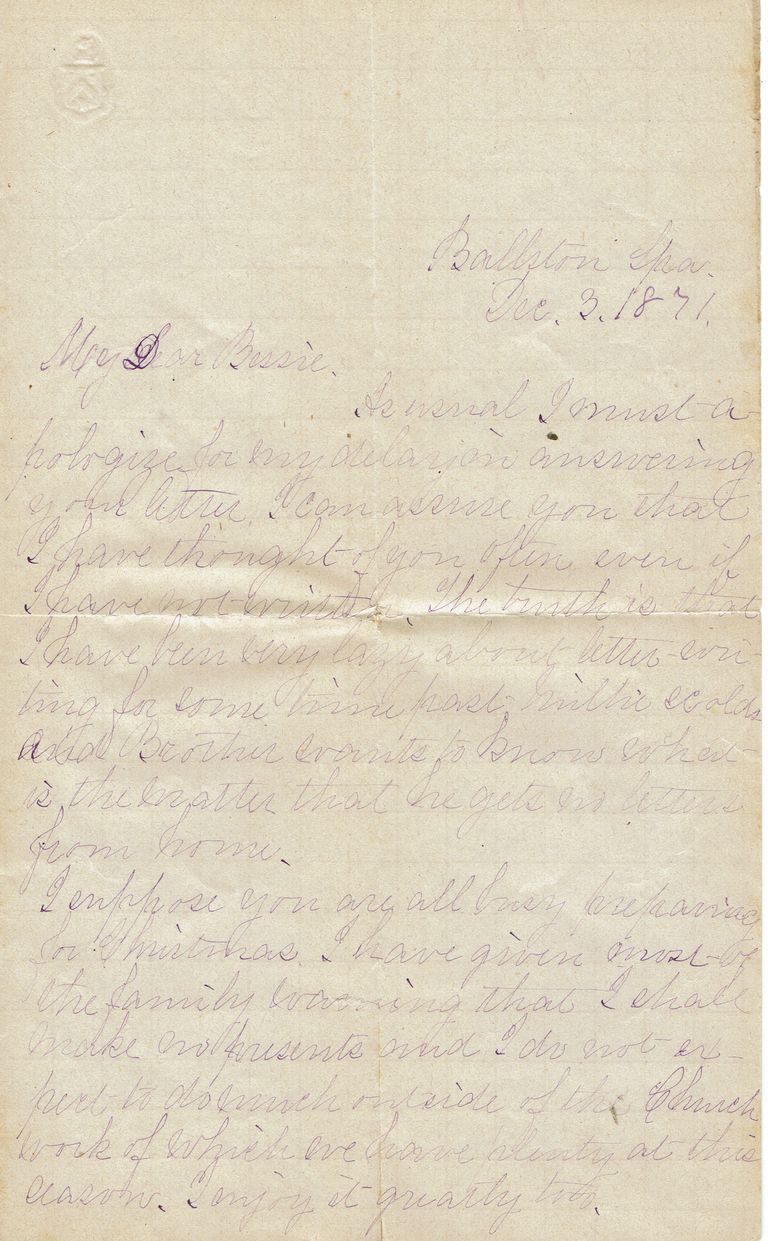 Ballston Spa.
Dec. 3. 1871.
My Dear Bessie.
As usual I must a-
pologize for my delay in answering
your letter. I can assure you that
I have thought of you often even if
I have not written. The truth is that
I have been very lazy about letter wri-
ting for some time past. Millie scolds
and Brother wants to know what
is the matter that he gets no letters
from home.
I suppose you are all busy preparing
for Christmas. I have given most of
the family warning that I shall
make no presents and I do not ex-
pect to do much outside of the Church
work of which we have plenty at this
season. I enjoy it greatly too.